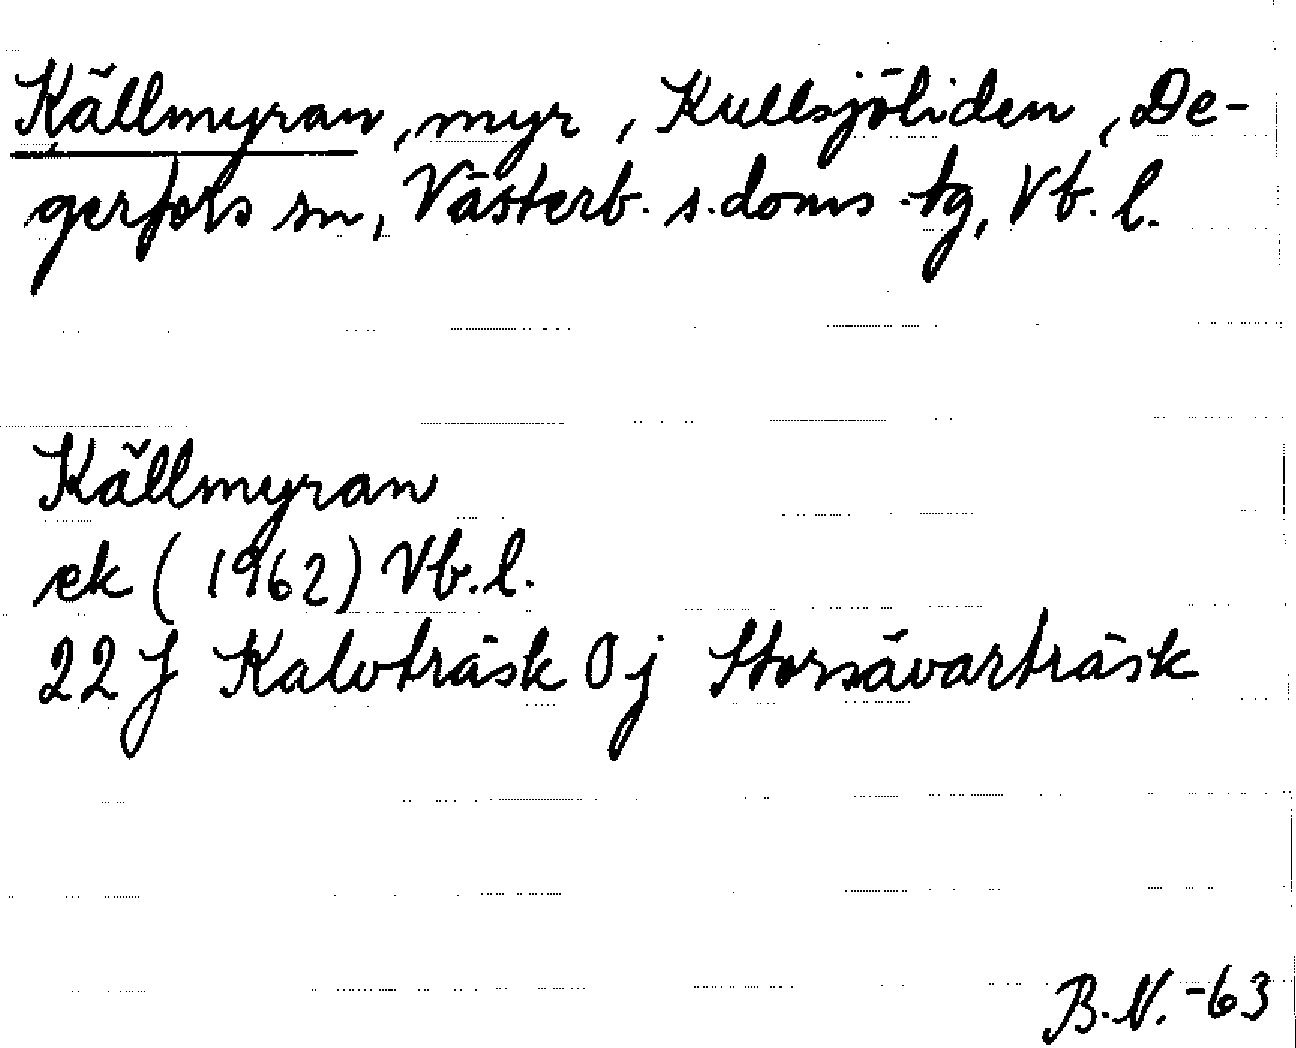 Källmyran, myr, Kullsjöliden, De-
gerfors sn, Västerb. s. doms. tg, Vb. l.
Källmyran
ek (1962) Vb. l.
22 J Kalvträsk Oj Storsävarträsk
B. N. -63